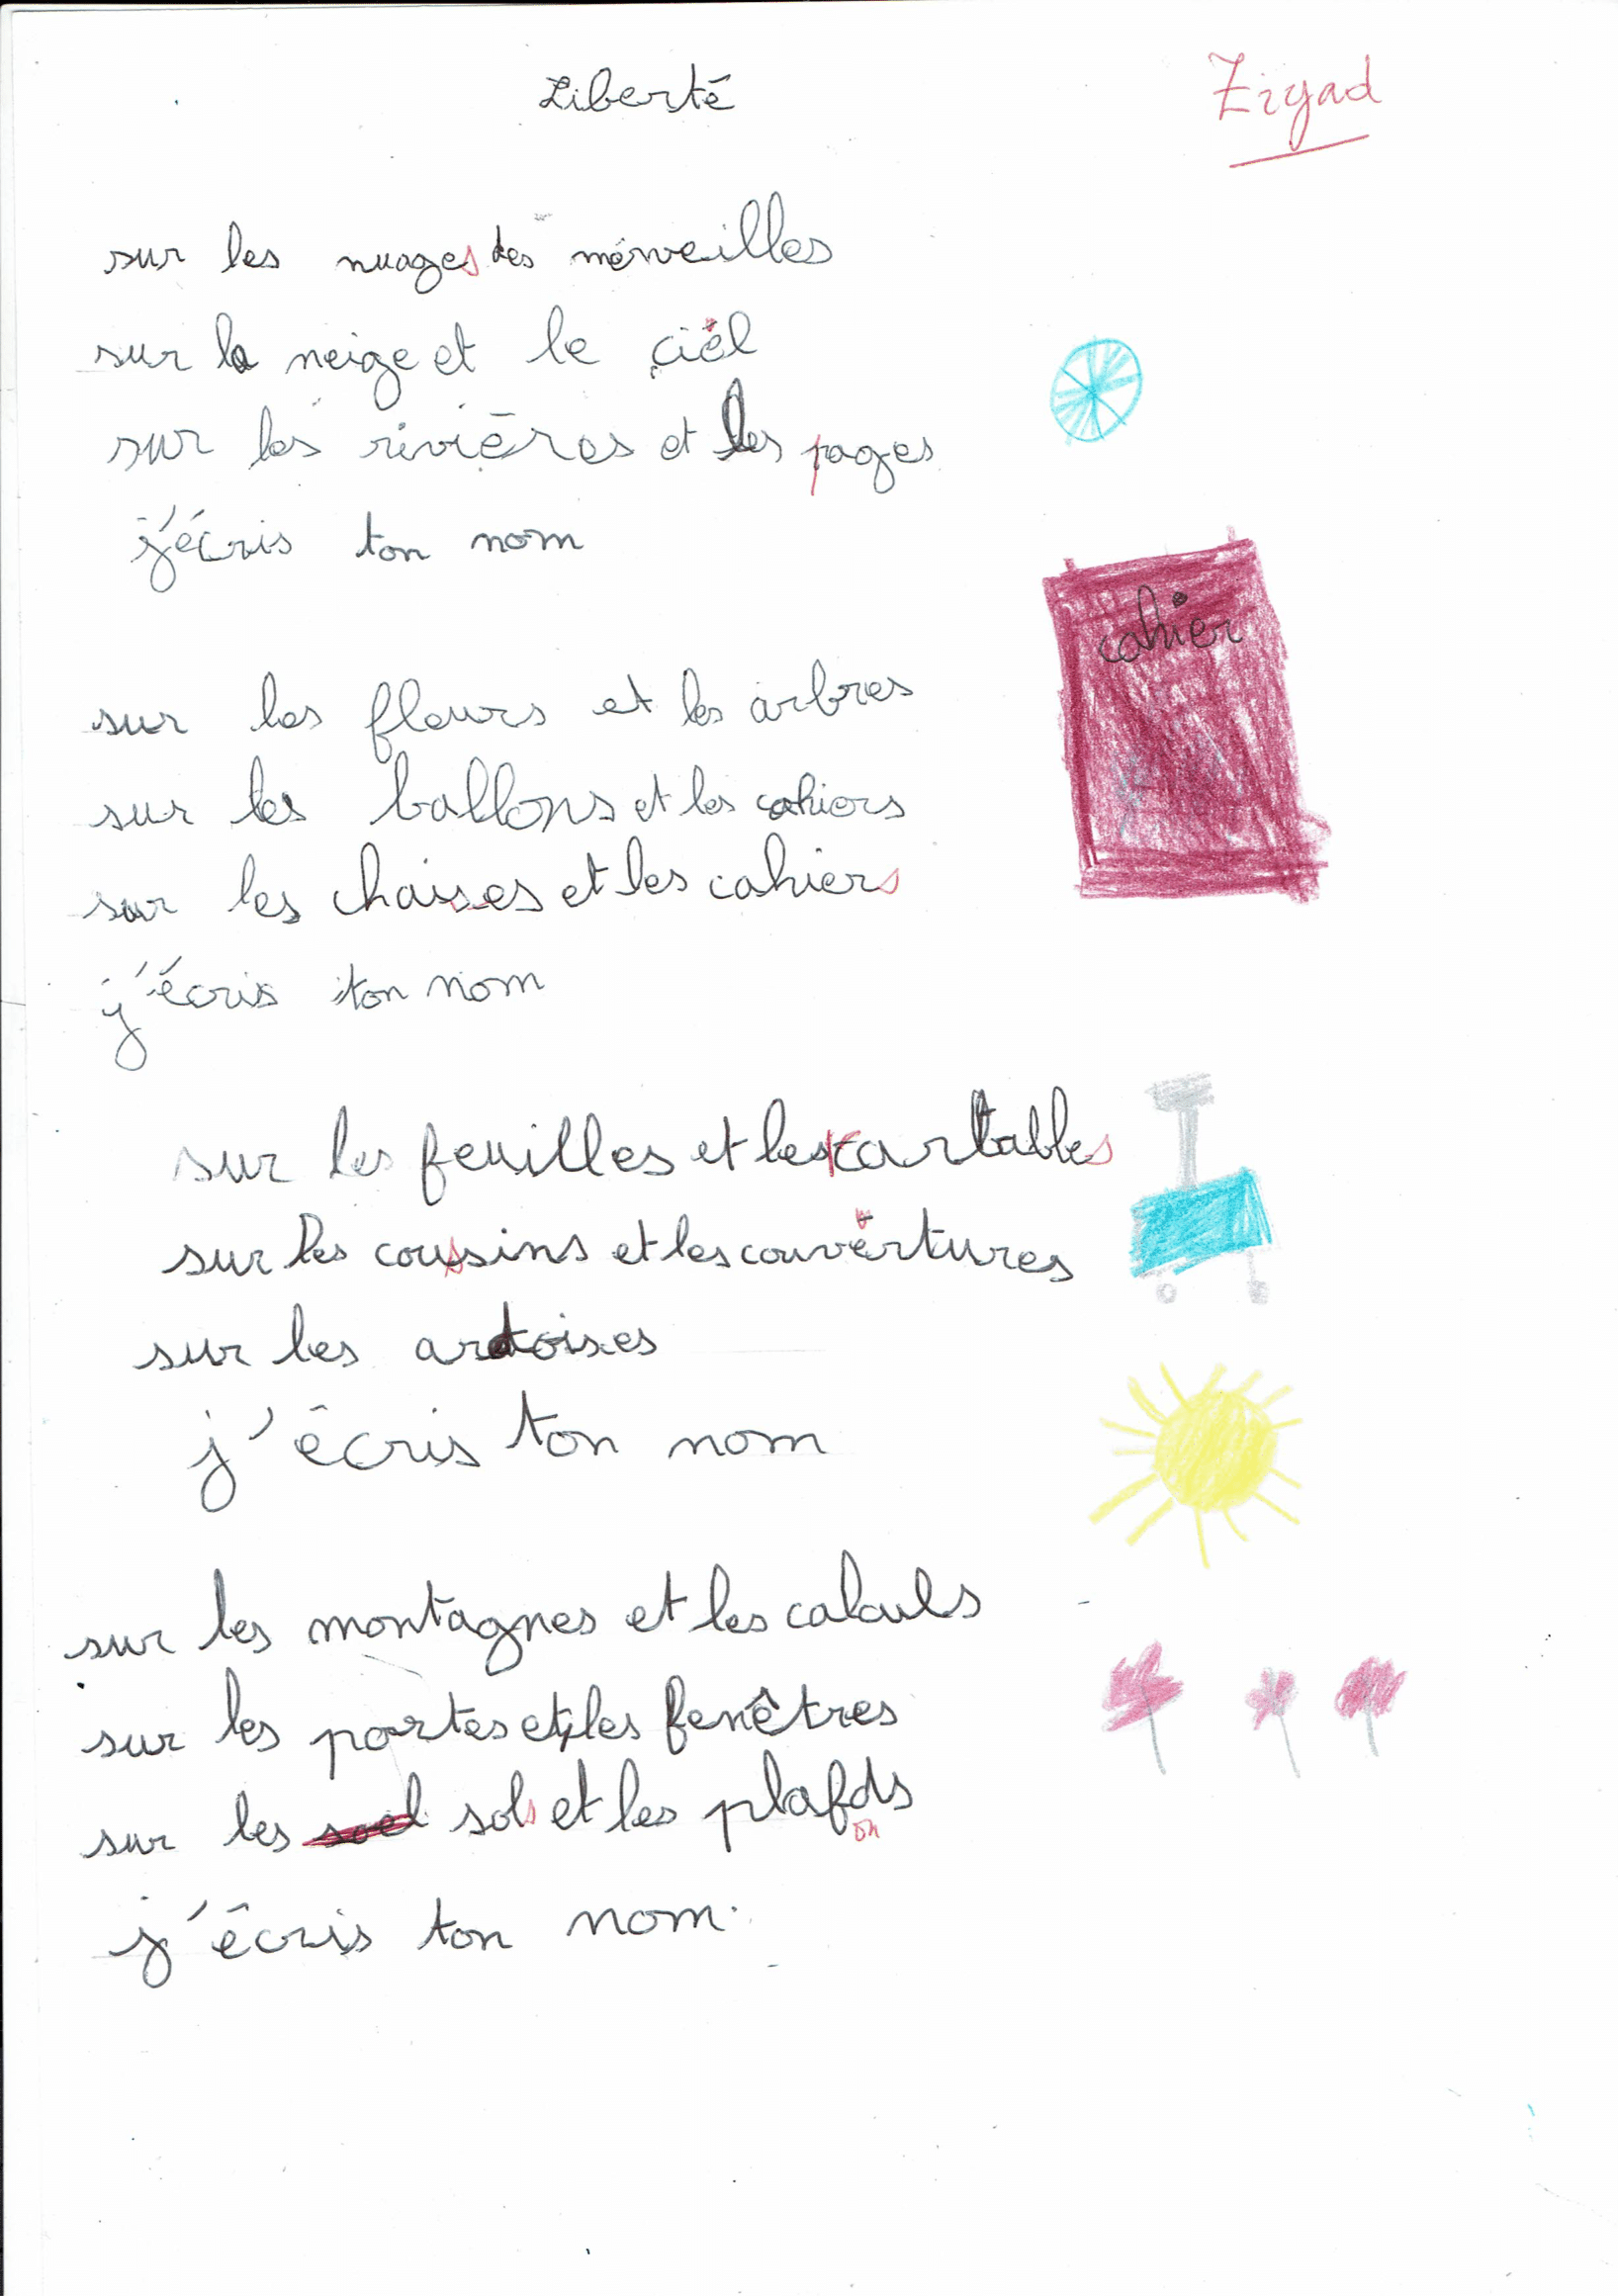 Liberté
Ziyad
sur les nuages des mérveilles
sur la neige et le ciél
sur les rivières et les pages
j'écris ton nom
cahier
sur les fleurs et les arbres
sur les ballons et les cahiers
sur les chaises et les cahiers
j'écris ton nom
sur les feuilles et les cartables
sur les coussins et les couvértures
sur les ardoises
j'écris ton nom
sur les montagnes et les calculs
sur les portes et les fenêtres
sur les sols et les plafonds
j'écris ton nom.